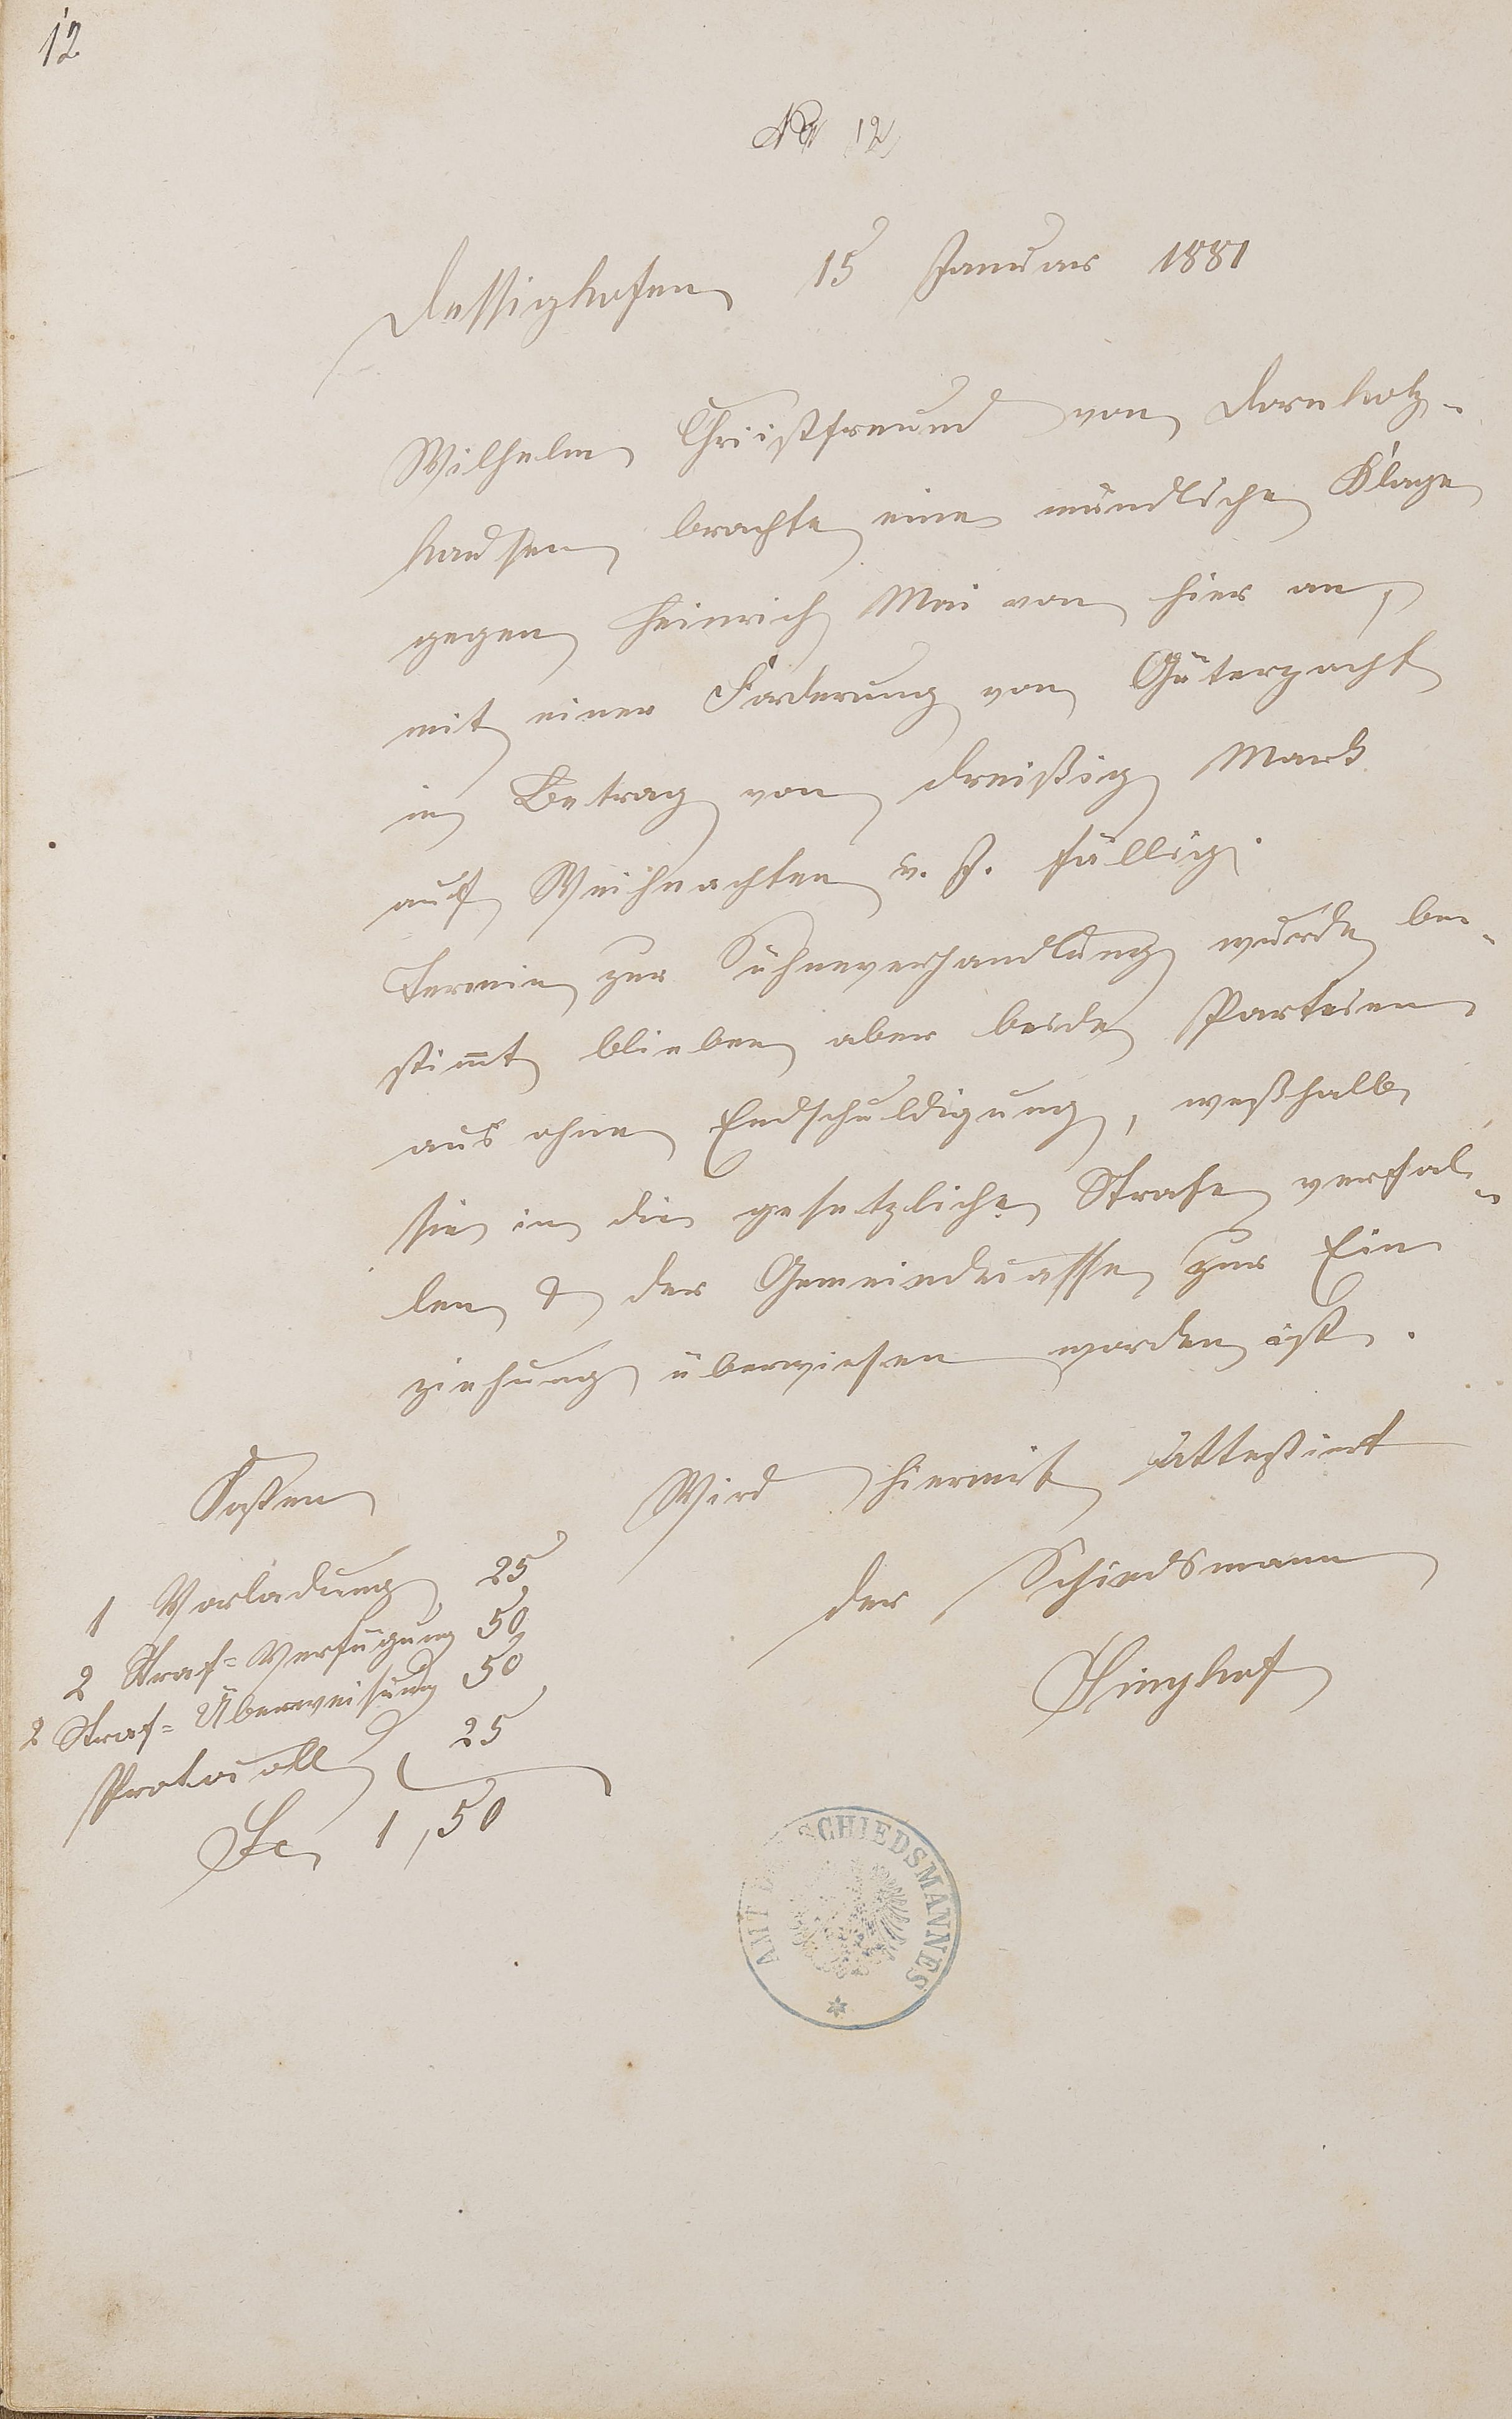 12
No 12
Dessighofen 15 Januar 1881
Wilhelm Christfreund von Dornholz-
hausen brachte eine mündliche Klage
gegen Heinrich Mai von hier an,
mit einer Forderung von Güterpacht
in Betrag von dreißig Mark
auf Weihnachten v. J. fällig.
Termin zur Sühneverhandlung wurde be-
stim̅t blieben aber beide Parteien
aus ohne Endschuldigung, weßhalb
sie in die gesetzliche Strafe verfal-
len & der Gemeindecasse zur Ein
ziehung überwiesen worden ist.
Wird hiermit Attestiert
Der Schiedsmann
Singhof
Kosten
1 Vorladung 25
2 Straf=Verfügung 50
2 Straf=Überweisung 50
Protocoll 25
Sa 1,50
AMT D SCHIEDSMANNES